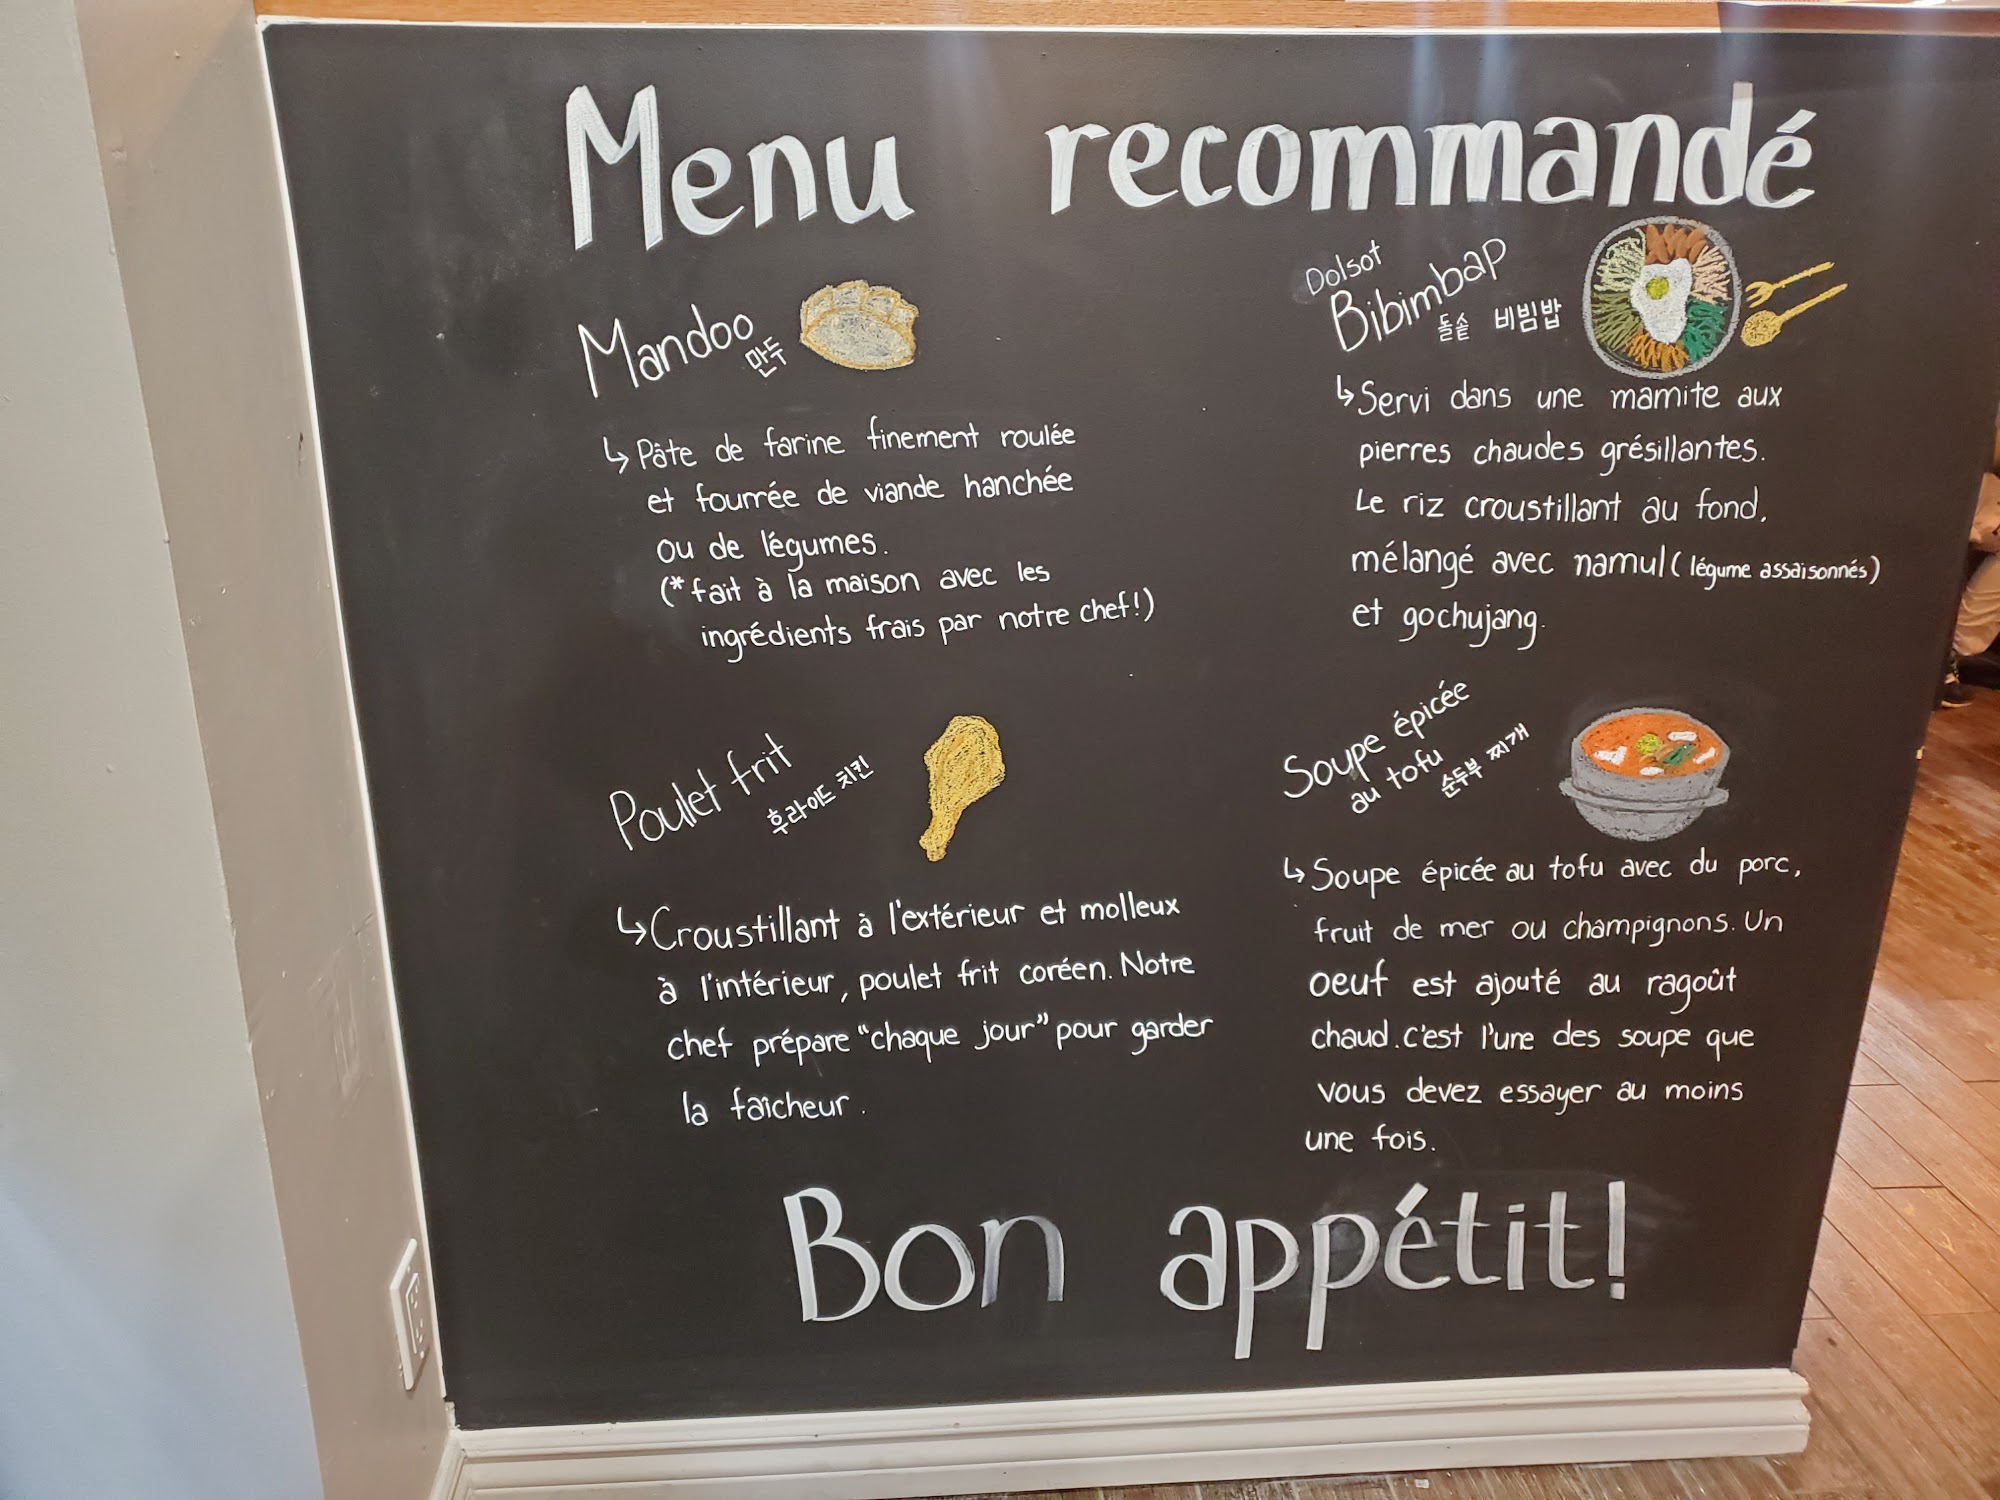 Menu recommandé
Mandoo
만두
↳ Pâte de farine finement roulée
et fourrée de viande hanchée
ou de légumes.
(* fait à la maison avec les
ingrédients frais par notre chef!)
Dolsot
Bibimbap
돌솥 비빔밥
↳ Servi dans une mamite aux
pierres chaudes grésillantes.
Le riz croustillant au fond,
mélangé avec namul (légume assaisonnés)
et gochujang.
Poulet frit
후라이드 치킨
↳ Croustillant à l'extérieur et molleux
à l'intérieur, poulet frit coréen. Notre
chef prépare "chaque jour" pour garder
la faîcheur.
Soupe épicée
au tofu
순두부 찌개
↳ Soupe épicée au tofu avec du porc,
fruit de mer ou champignons. Un
oeuf est ajouté au ragoût
chaud. C'est l'une des soupe que
vous devez essayer au moins
une fois.
Bon appétit!